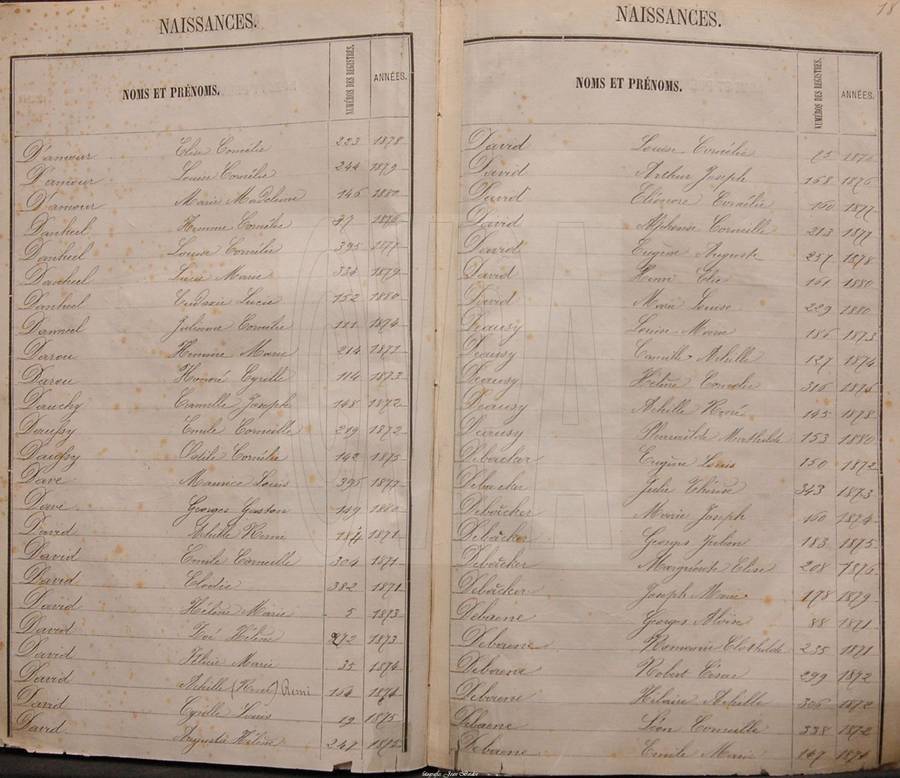 NAISSANCES.
NOMS ET PRÉNOMS. NUMÉROS DES REGISTRES. ANNÉES.
D'amour Elise Cornélie 223 1878
D'amour Louise Cornélie 244 1879
D'amour Marie Madeleine 146 1880
Danheel Cornélie 37
Danheel Louise Cornélie 395 1877
Danheel Lucie Marie 334 1879
Danheel Lucie 152 1880
Julienne Cornélie 111 1874
Darou Marie 214 1871
Darou Honoré Cyrille 114 1873
Dauchy Camille Joseph 148 1872
Emile Corneille 219 1872
Odile Cornélie 142 1875
Dave Maurice Louis 395 1877
Dave Georges Gaston 149 1880
David Achille Remi 184 1871
David Emile Corneille 304 1871
David Elodie 382 1871
David Hélène Marie 5 1873
David Zoé Hélène 272 1873
David Marie 35 1874
David Achille (René) Remi 1874
David Cyrille Louis 19 1875
David Augusta Hélène 247
18
NAISSANCES.
NOMS ET PRÉNOMS. NUMÉROS DES REGISTRES. ANNÉES.
David Louise Cornélie 1876
David Arthur Joseph 168 1876
David Eléonore 150 1877
David Alphonse Corneille 213 1877
David Eugène Auguste 257 1878
David Henri Elie 161 1880
David Marie Louise 229 1880
Deausy Louise Marie 186 1873
Deausy Camille Achille 127 1874
Deausy Hélène Cornélie 316
Deausy Achille René 145 1878
Deausy Pharaïlde Mathilde 153 1880
Debäcker Eugène Louis 150 1872
Debäcker Julie 343 1873
Debäcker Marie Joseph 160 1874
Debäcker Georges 183 1875
Debäcker Marguerite Elise 208 1876
Debäcker Joseph Marie 178 1879
Debaene Georges Moïse 88 1871
Debaene Romanie Clothilde 235 1871
Debaene Robert César 299 1872
Debaene Hilaire Achille 1872
Debaene Léon Corneille 338 1872
Debaene Emile Marie 147